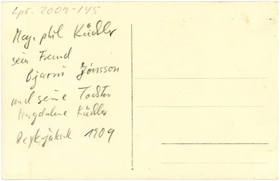 Lpr. 2009-145
Mag. phil Küchler
sein Freund
Bjarni Jónsson
und seine Tochter
Magdalene Küchler
Reykjavik 1909